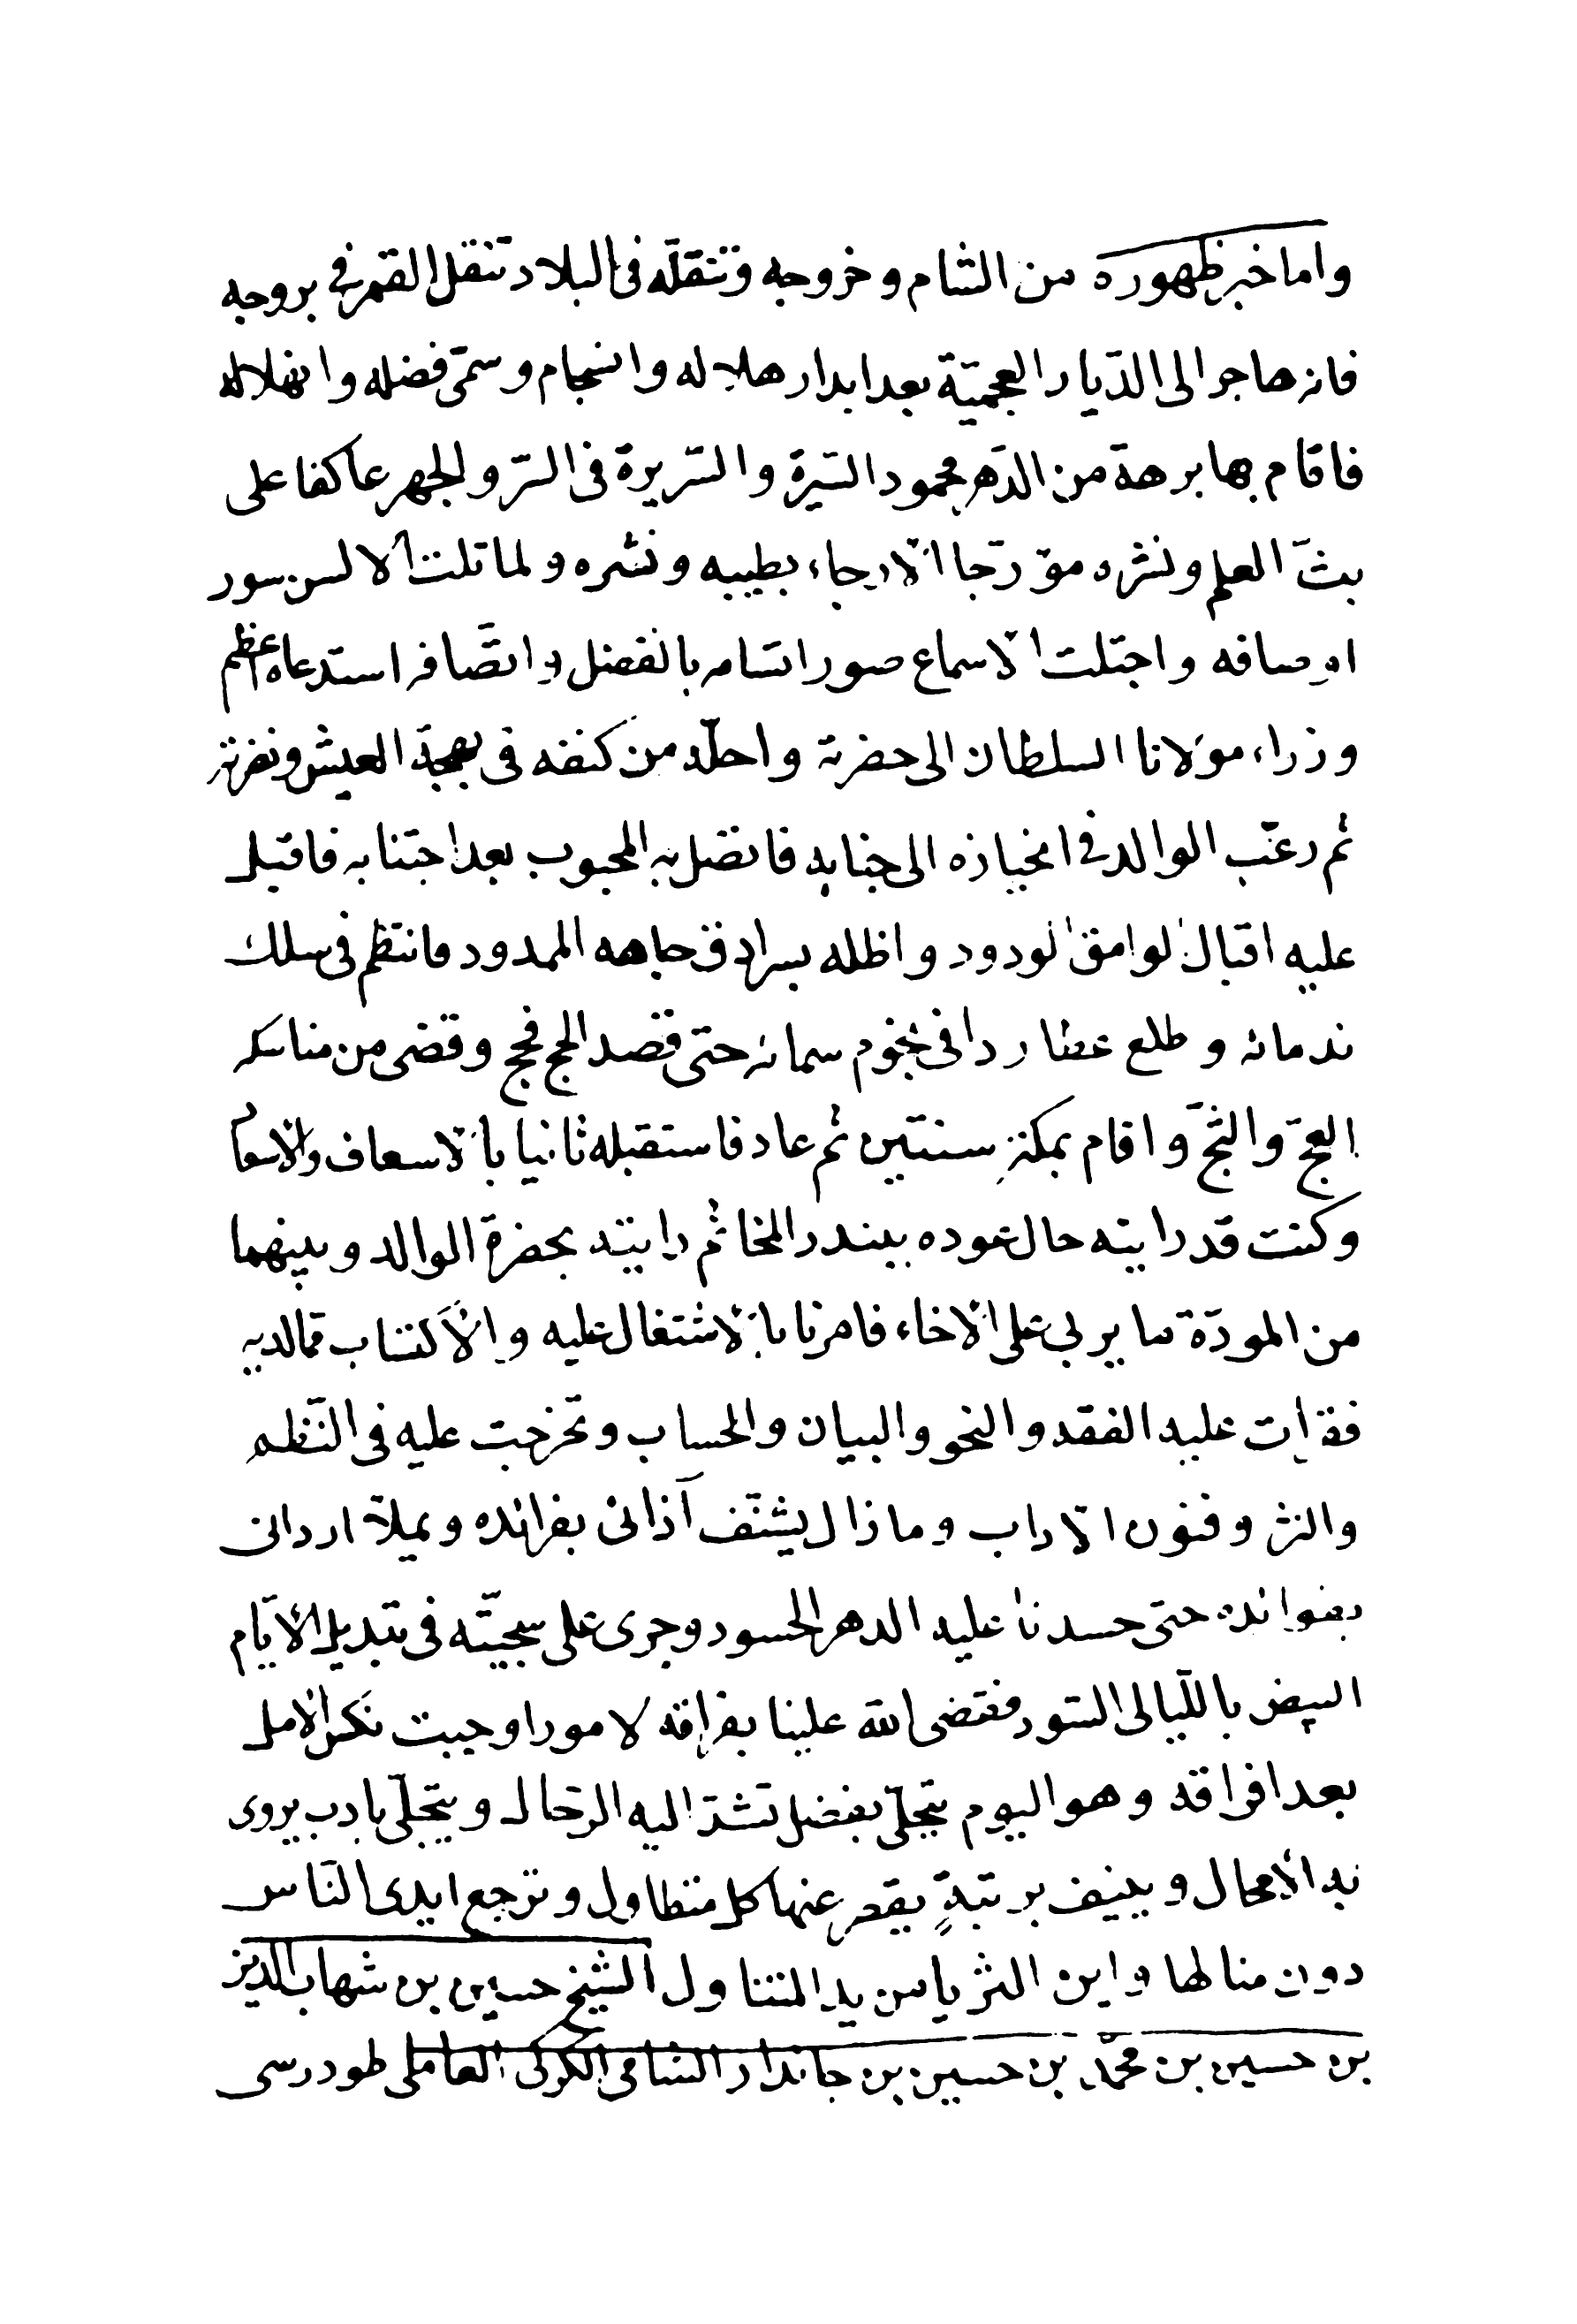 واما خبر ظهوره من الشام وخروجه وتنقله فى البلاد تنقل القمر فى بروجه
فانه هاجر الى الديار العجمية بعد ابدار هلاله وانسجام وسمى فضله وانهلاله
فاقام بها برهة من الدهر محمود السيرة والسريرة فى السر والجهر عاكفا على
بث العلم ونشره مؤرجا الارجاء بطيبه ونشره ولما تلت الالسن سور
اوصافه واجتلت الاسماع صور اتسامه بالفضل واتصافه استدعاه اعظم
وزراء مولانا السلطان الى حضرته واحله من كنفه فى بهجة العيش ونضرته
ثم رغب الوالد فى انحيازه الى جنابه فاتصل به المحبوب بعد اجتنابه فاقبل
عليه اقبال الوامق الودود واظله بسرادق جاهه الممدود فانتظم فى سلك
ندمائه وطلع عطاردا فى نجوم سمائه حتى قصد الحج فحج وقضى من مناسكه
العج والثج واقام بمكة سنتين ثم عاد فاستقبله ثانيا بالاسعاف والاسعاد
وكنت قد رايته حال عوده ببندر المخا ثم رايته بحضرة الوالد وبينهما
من المودة ما يربى على الاخاء فامرنا بالاشتغال عليه والاكتساب مما لديه
فقرأت عليه الفقه والنحو والبيان والحساب وتخرجت عليه فى النظم
والنثر وفنون الاداب وما زال يشنف آذانى بفرائده ويملأ اردانى
بفوائده حتى حسدنا عليه الدهر الحسود وجرى على سجيته فى تبديل الايام
البيض بالليالى السود فقضى الله علينا بفراقه لامور اوجبت نكس الامل
بعد افراقه وهو اليوم يتجلى بفضل تشد اليه الرحال ويتحلى بادب يروى
به الامحال وينيف برتبة يقصر عنها كل متطاول وترجع ايدى الناس
دون منالها واين الثريا من يد المتناول الشيخ حسين بن شهاب الدين
بن حسين بن محمد بن حسين بن جاندار الشامى الكركى العاملى طود رسى